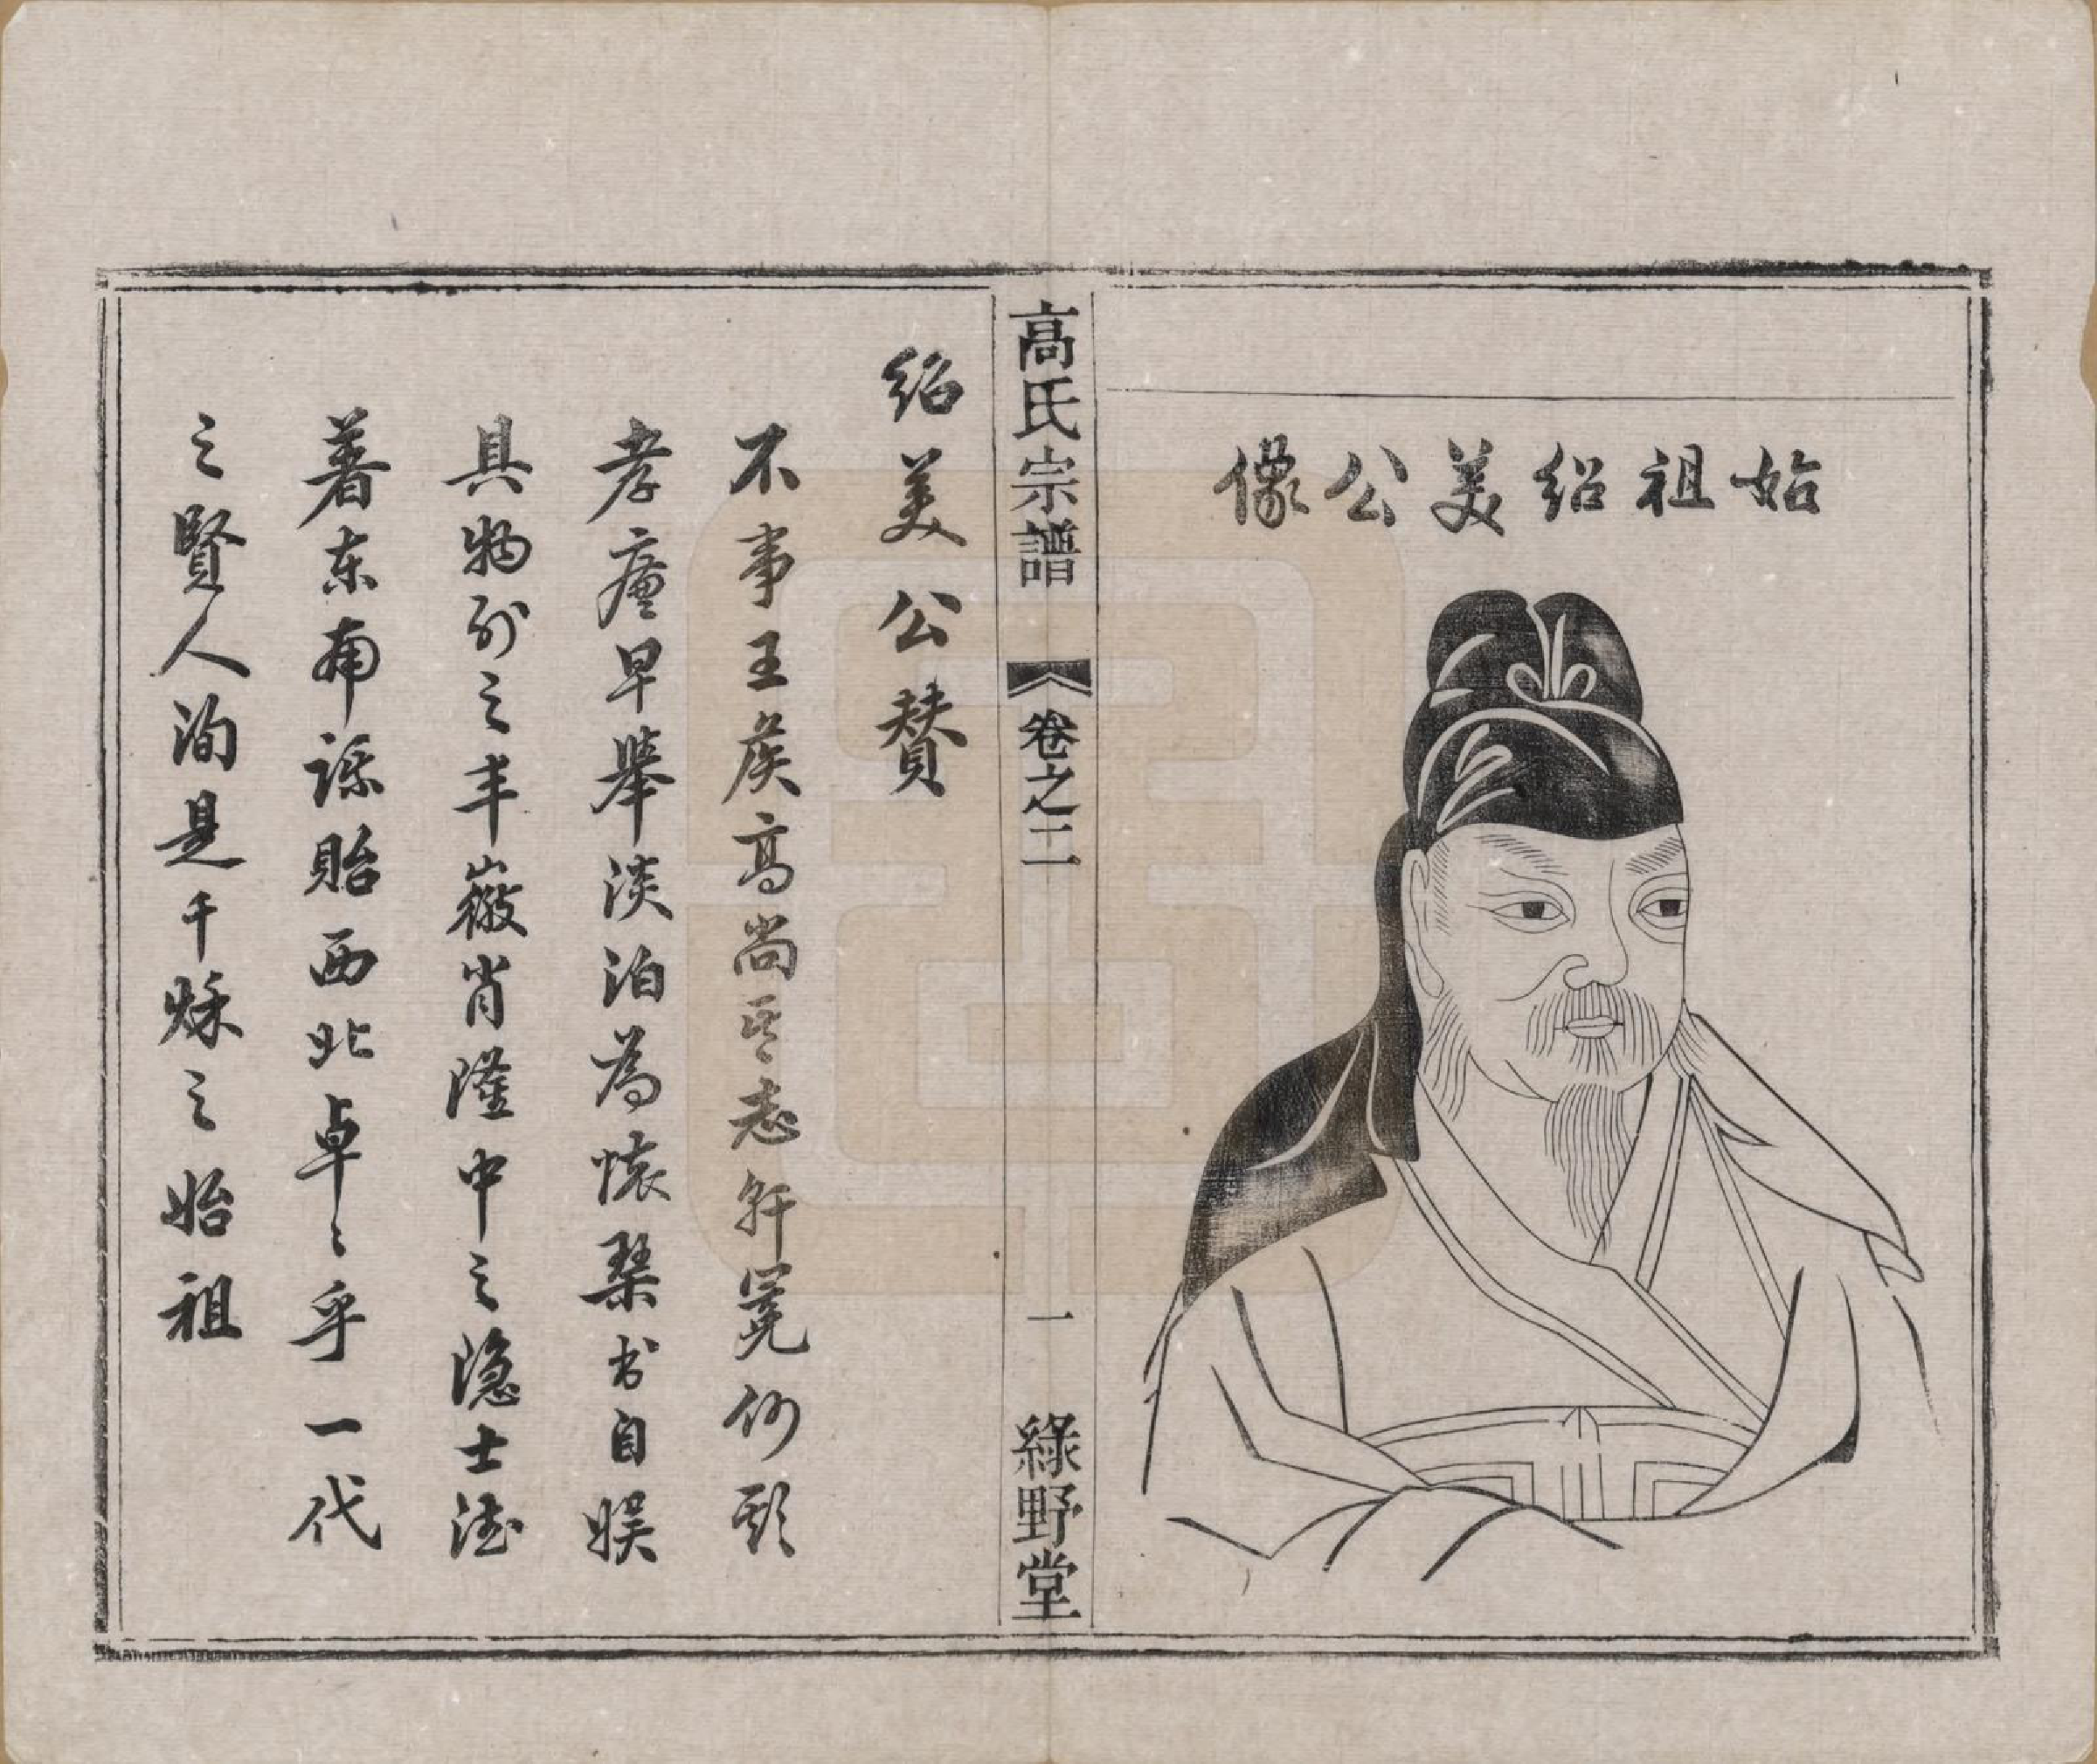 始祖紹美公像
高氏宗譜 卷之二 一 綠野堂
紹美公贊
不事王侯高尚其志軒冕何
孝廉早舉淡泊為懷琴书自娛
具物外之丰嶽肖隆中之隐士德
著东南謀貽西北卓之乎一代
之賢人洵是千穌之始祖